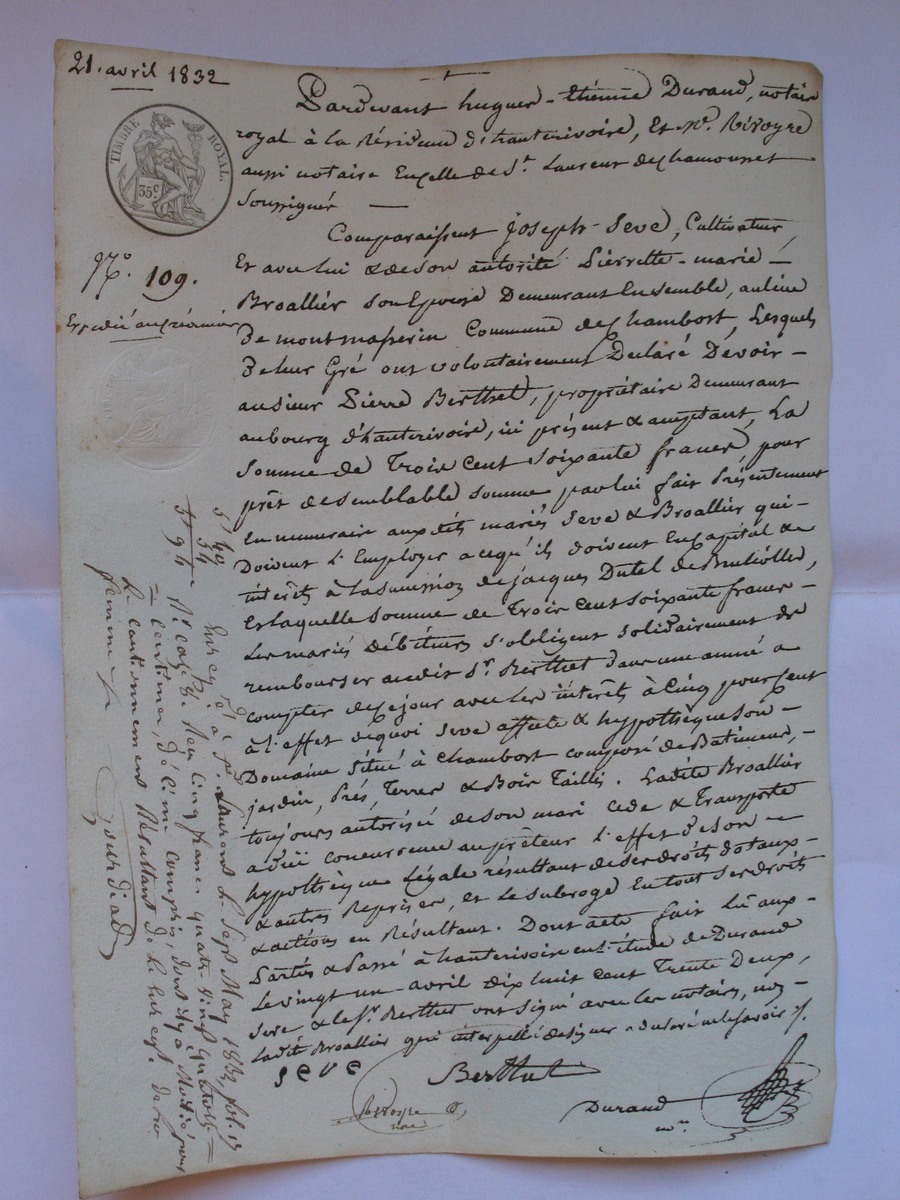 21. avril 1832
TIMBRE ROYAL.
35c
N.º 109.
Expedié au créancier
Pardevant hugues-étienne Durand, notaire
royal à la Résidence d'hauterivoire, Et Mº. Rivoyre
aussi notaire En celle de St. Laurent de Chamousset
Soussignés —
Comparaissent Joseph Seve, Cultivateur
Et avec lui & de son autorité Pierrette-marie
Broallier son Epouse Demeurant Ensemble, au lieu
de montmasserin Commune de Chambost, Lesquels
De leur Gré ont volontairement Déclaré Devoir
au sieur Pierre Berthet, propriétaire Demeurant
au bourg d'hauterivoire, ici présent & acceptant, La
Somme de Trois Cent Soixante francs, pour
prêt de semblable somme par lui fait Présentement
En numeraire aux dits mariés Seve & Broallier qui
Doivent l'Employer a ce qu'ils doivent En Capital &
intérêts à la succession de jacques Dutel de Brulioles,
Et laquelle Somme de Trois Cent Soixante francs
Les mariés Débiteurs s'obligent solidairement de
rembourser au dit Sr. Berthet dans une année a
compter de ce jour avec les intérêts à Cinq pour Cent
à l'effet de quoi Seve affecte & hypothèque son
Domaine Situé à Chambost composé de Batimens,
jardin, Prés, Terres & Bois Taillis. Ladite Broallier
toujours autorisée de son mari Cede & Transporte
a dûë concurrence au prêteur l'effet de son
hypothèque Légale résultant de ses droits dotaux
& autres Reprises, et Le subroge En tout ses droits
& actions en Résultant. Dont acte fait Lû aux
Parties & Passé à hauterivoire en l'étude de Durand
Le vingt un avril Dix huit Cent Trente Deux,
Seve & le Sr. Berthet ont signé avec les notaires, non
Ladite Broallier qui interpellée de signer a déclaré ne le savoir
seve
Berthet
Durand
Nre.
5f 40
54
5f 94
Enregé. à St. Laurent Le Sept May 1832, fol. 13
Rº. case 8. Reçu cinq francs quatre vingt quatorze
centimes, décime compris, dont il y a Moitié pour
Le cautionnement Résultant de
femme